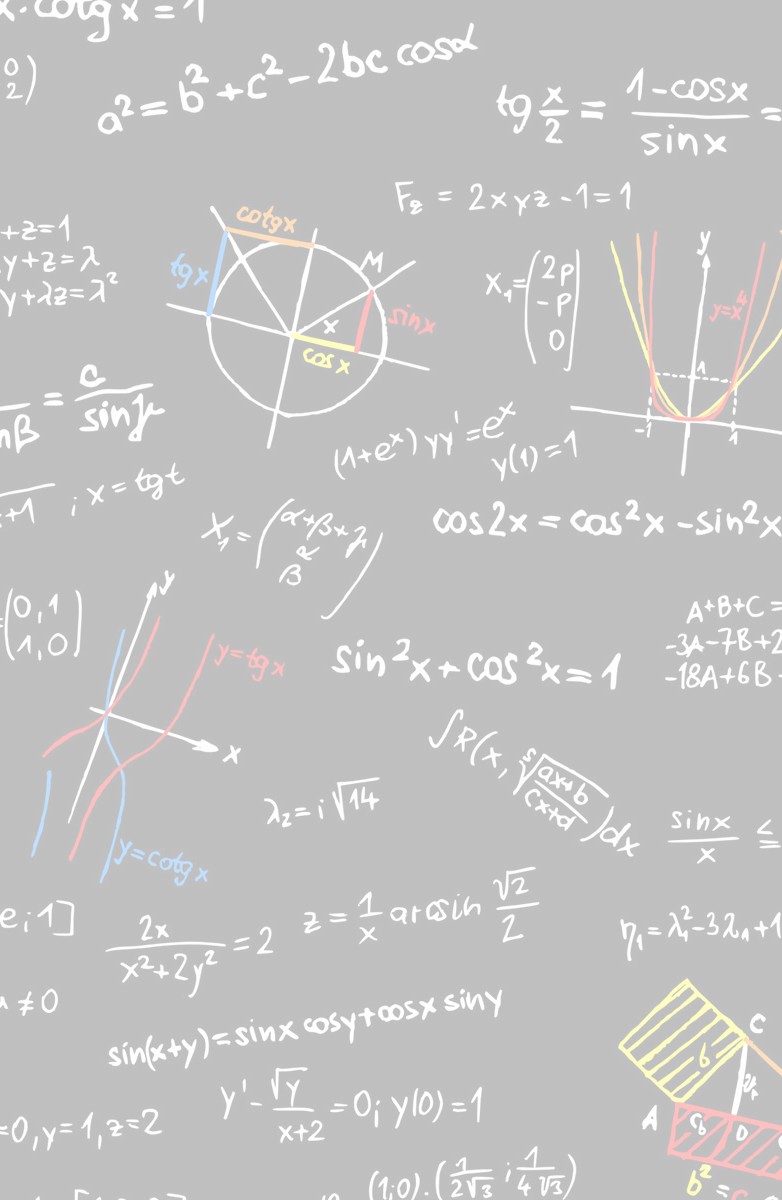 x·cotg x = 1
a² = b² + c² - 2bc cosα
0
2)
tg x/2 = 1-cosx / sinx =
F₂ = 2xyz - 1 = 1
cotgx
+z=1
y+z=λ
y+λz=λ²
tgx
M
sinx
x
cosx
X₁ = (2p
-p
0)
y
y=x⁴
1
-1
1
= c / sinγ
nβ
(1+eˣ) yy' = eˣ
y(1) = 1
+1 ; x = tgt
X₁ = (α+β+γ
α
β)
cos2x = cos²x - sin²x
(0,1
1,0)
y
y=tgx
x
y=cotgx
sin²x + cos²x = 1
A+B+C =
-3A-7B+2
-18A+6B-
∫R(x, ⁵√(ax+b / cx+d))dx
λ₂ = i√14
sinx / x ≤
e;1]
2x / x²+2y² = 2
z = 1/x arcsin √2/2
η₁ = λ₁² - 3λ₁ + 1
≠ 0
sin(x+y) = sinx cosy + cosx siny
C
b
A
D
=0, y=1, z=2
y' - √y / x+2 = 0; y(0) = 1
b² =
(1;0).(1/2√3 ; 1/4√3)